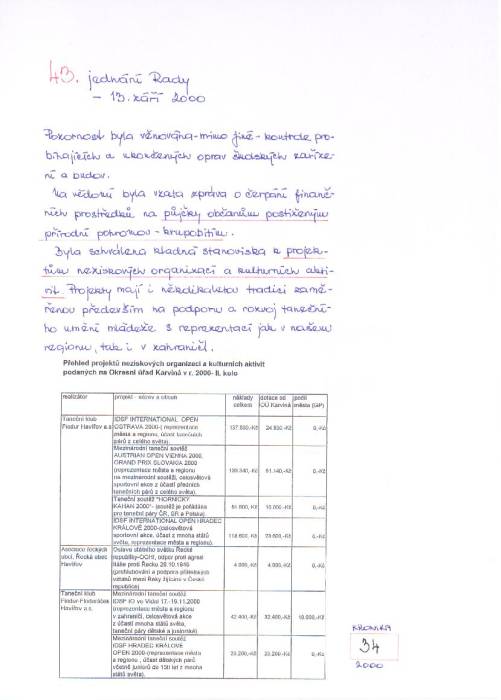 43. jednání Rady
- 13. září 2000
Pozornost byla věnována - mimo jiné - kontrole pro-
bíhajících a ukončených oprav školských zaříze-
ní a budov.
Na vědomí byla vzata zpráva o čerpání finanč-
ních prostředků na půjčky občanům postiženým
přírodní pohromou - krupobitím.
Byla schválena kladná stanoviska k projek-
tům neziskových organizací a kulturních akti-
vit. Projekty mají i několikaletou tradici zamě-
řenou především na podporu a rozvoj taneční-
ho umění mládeže s reprezentací jak v našem
regionu, tak i v zahraničí.
Přehled projektů neziskových organizací a kulturních aktivit
podaných na Okresní úřad Karviná v r. 2000- II. kolo
realizátor projekt - název a obsah náklady dotace od podíl
celkem OÚ Karviná města (GP)
Taneční klub IDSF INTERNATIONAL OPEN
Fiedur Havířov a.s OSTRAVA 2000-( reprezentace 24 800,-Kč 0,-Kč
města a regionu, účast tanečních
párů z celého světa).
Mezinárodní taneční soutěž
AUSTRIAN OPEN VIENNA 2000,
GRAND PRIX SLOVAKIA 2000
(reprezentace města a regionu 0,-Kč
na mezinárodní soutěži, celosvětová
sportovní akce z účastí předních
tanečních párů z celého světa).
Taneční soutěž "HORNICKÝ
KAHAN 2000"- (soutěž je pořádána 0,-Kč
pro taneční páry ČR, SR a Polska).
IDSF INTERNATIONAL OPEN HRADEC
KRÁLOVÉ 2000-(celosvětová
sportovní akce, účast z mnoha států 0,-Kč
světa, reprezentace města a regionu).
Asociace řeckých Oslava státního svátku Řecké
obcí, Řecká obec republiky-OCHI, odpor proti agresi
Havířov Itálie proti Řecku 28.10.1940 4 000,-Kč 4 000,-Kč 0,-Kč
(prohlubování a podpora přátelských
vztahů mezi Řeky žijícími v České
republice)
Taneční klub Mezinárodní taneční soutěž
Havířov a.s. (reprezentace města a regionu 42 400,-Kč 32 400,-Kč 10 000,-Kč
v zahraničí, celosvětová akce
z účastí mnoha států světa,
taneční páry dětské a juniorské)
Mezinárodní taneční soutěž
IDSF HRADEC KRÁLOVÉ
OPEN 2000-(reprezentace města 0,-Kč
a regionu , účast dětských párů
včetně juniorů do 15ti let z mnoha
států světa).
KRONIKA
34
2000